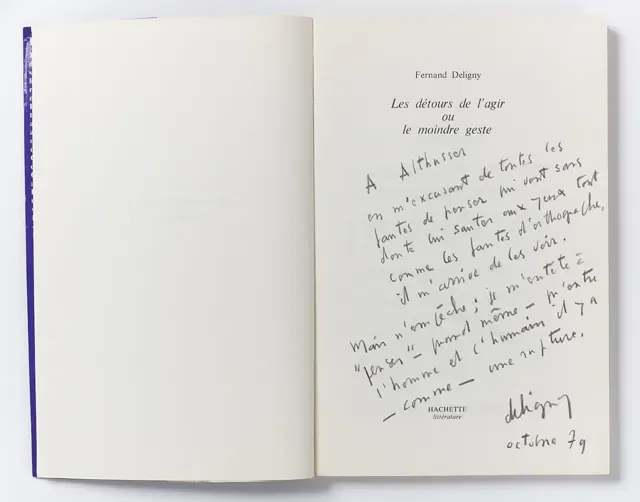 Fernand Deligny
Les détours de l'agir
ou
le moindre geste
A Althusser
en m'excusant de toutes les
fautes de penser qui vont sans
doute lui sauter aux yeux tout
comme les fautes d'orthographe,
il m'arrive de les voir.
Mais n'empêche ; je m'entête à
"penser" – quand même – qu'entre
l'homme et l'humain il y a
– comme – une rupture.
HACHETTE
littérature
deligny
octobre 79